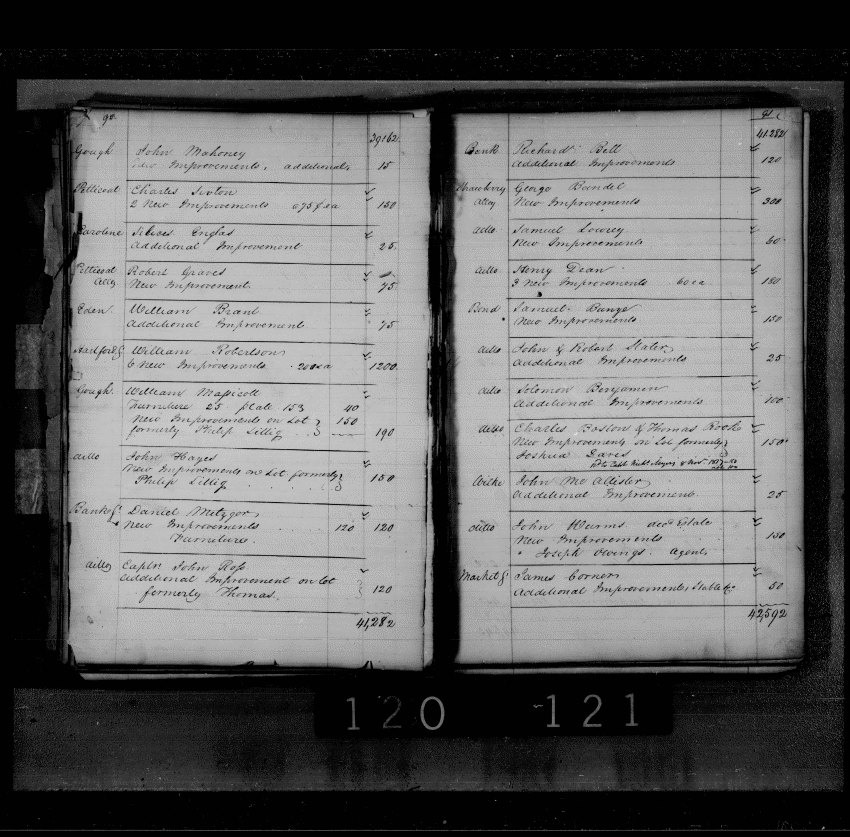 90
39162
Gough John Mahoney
New Improvements, additional, 15
Petticoat Charles
2 New Improvements @75$ ea 150
Caroline Englas
Additional Improvement 25
Petticoat Robert Graves
Ally New Improvement 75
Eden William Brant
Additional Improvement 75
Hartford St William Robertson
6 New Improvements 200 ea 1200
Gough William Massicott
Furniture 25 plate 153 40
New Improvements on Lot } 150
formerly Philip Sillig } 190
ditto John Hayes
New Improvements on Lot formerly }
Philip Sillig } 150
Bank St Daniel Metzger
New Improvements 120 120
Furniture
ditto Captn John Ross
Additional Improvement on lot }
formerly Thomas. } 120
41,282
91
41282
Bank Richard Bell
Additional Improvements 120
Strawberry George Bandel
Alley New Improvements 300
ditto Samuel Lowrey
New Improvements 60
ditto Henry Dean
3 New Improvements 60 ea 180
Bond Samuel Bunye
New Improvements 150
ditto John & Robert Slater
Additional Improvements 25
ditto Solomon Benjamin
Additional Improvements 100
ditto Charles Boston & Thomas Rooke
New Improvements on Lot formerly }
Joshua Dares } 150
Wilke John McAllister
Additional Improvement 25
ditto John Wurms decd Estate
New Improvements 150
Joseph Owings Agent
Market St James Corner
Additional Improvements, Stable &c 50
42,592
120 121